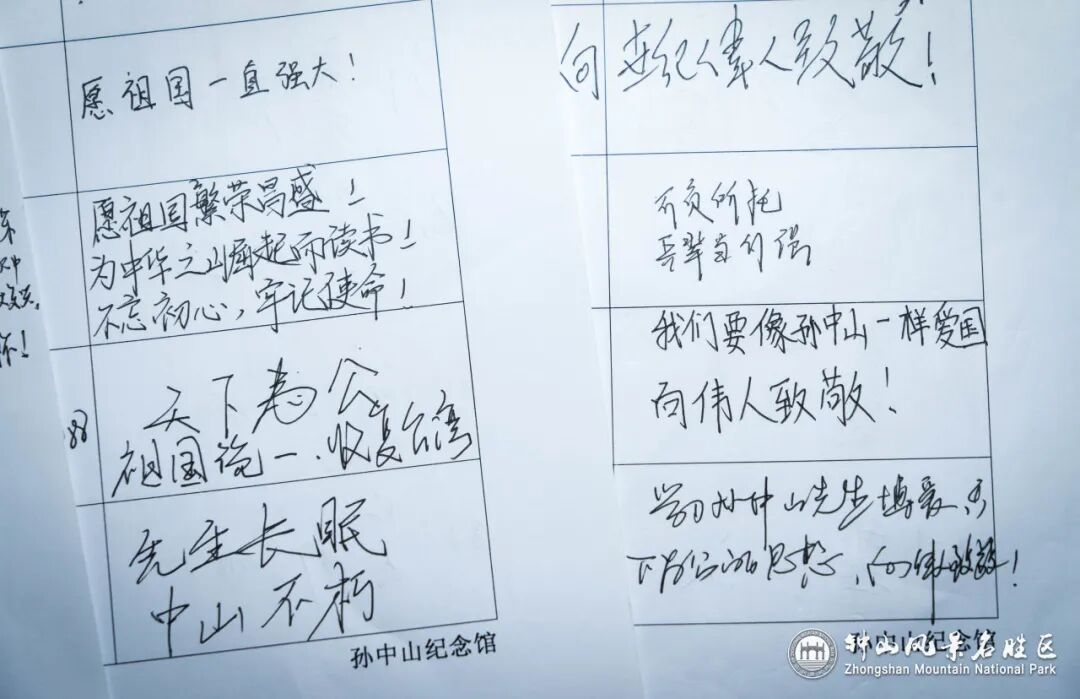 愿祖国一直强大！
愿祖国繁荣昌盛！
为中华之崛起而读书！
不忘初心，牢记使命！
天下为公
祖国统一、收复台湾
先生长眠
中山不朽
孙中山纪念馆
向世纪伟人致敬！
不负所托
吾辈自强
我们要像孙中山一样爱国
向伟人致敬！
学习孙中山先生博爱、天
下为公的思想，向伟人致敬！
孙中山纪念馆
钟山风景名胜区
Zhongshan Mountain National Park